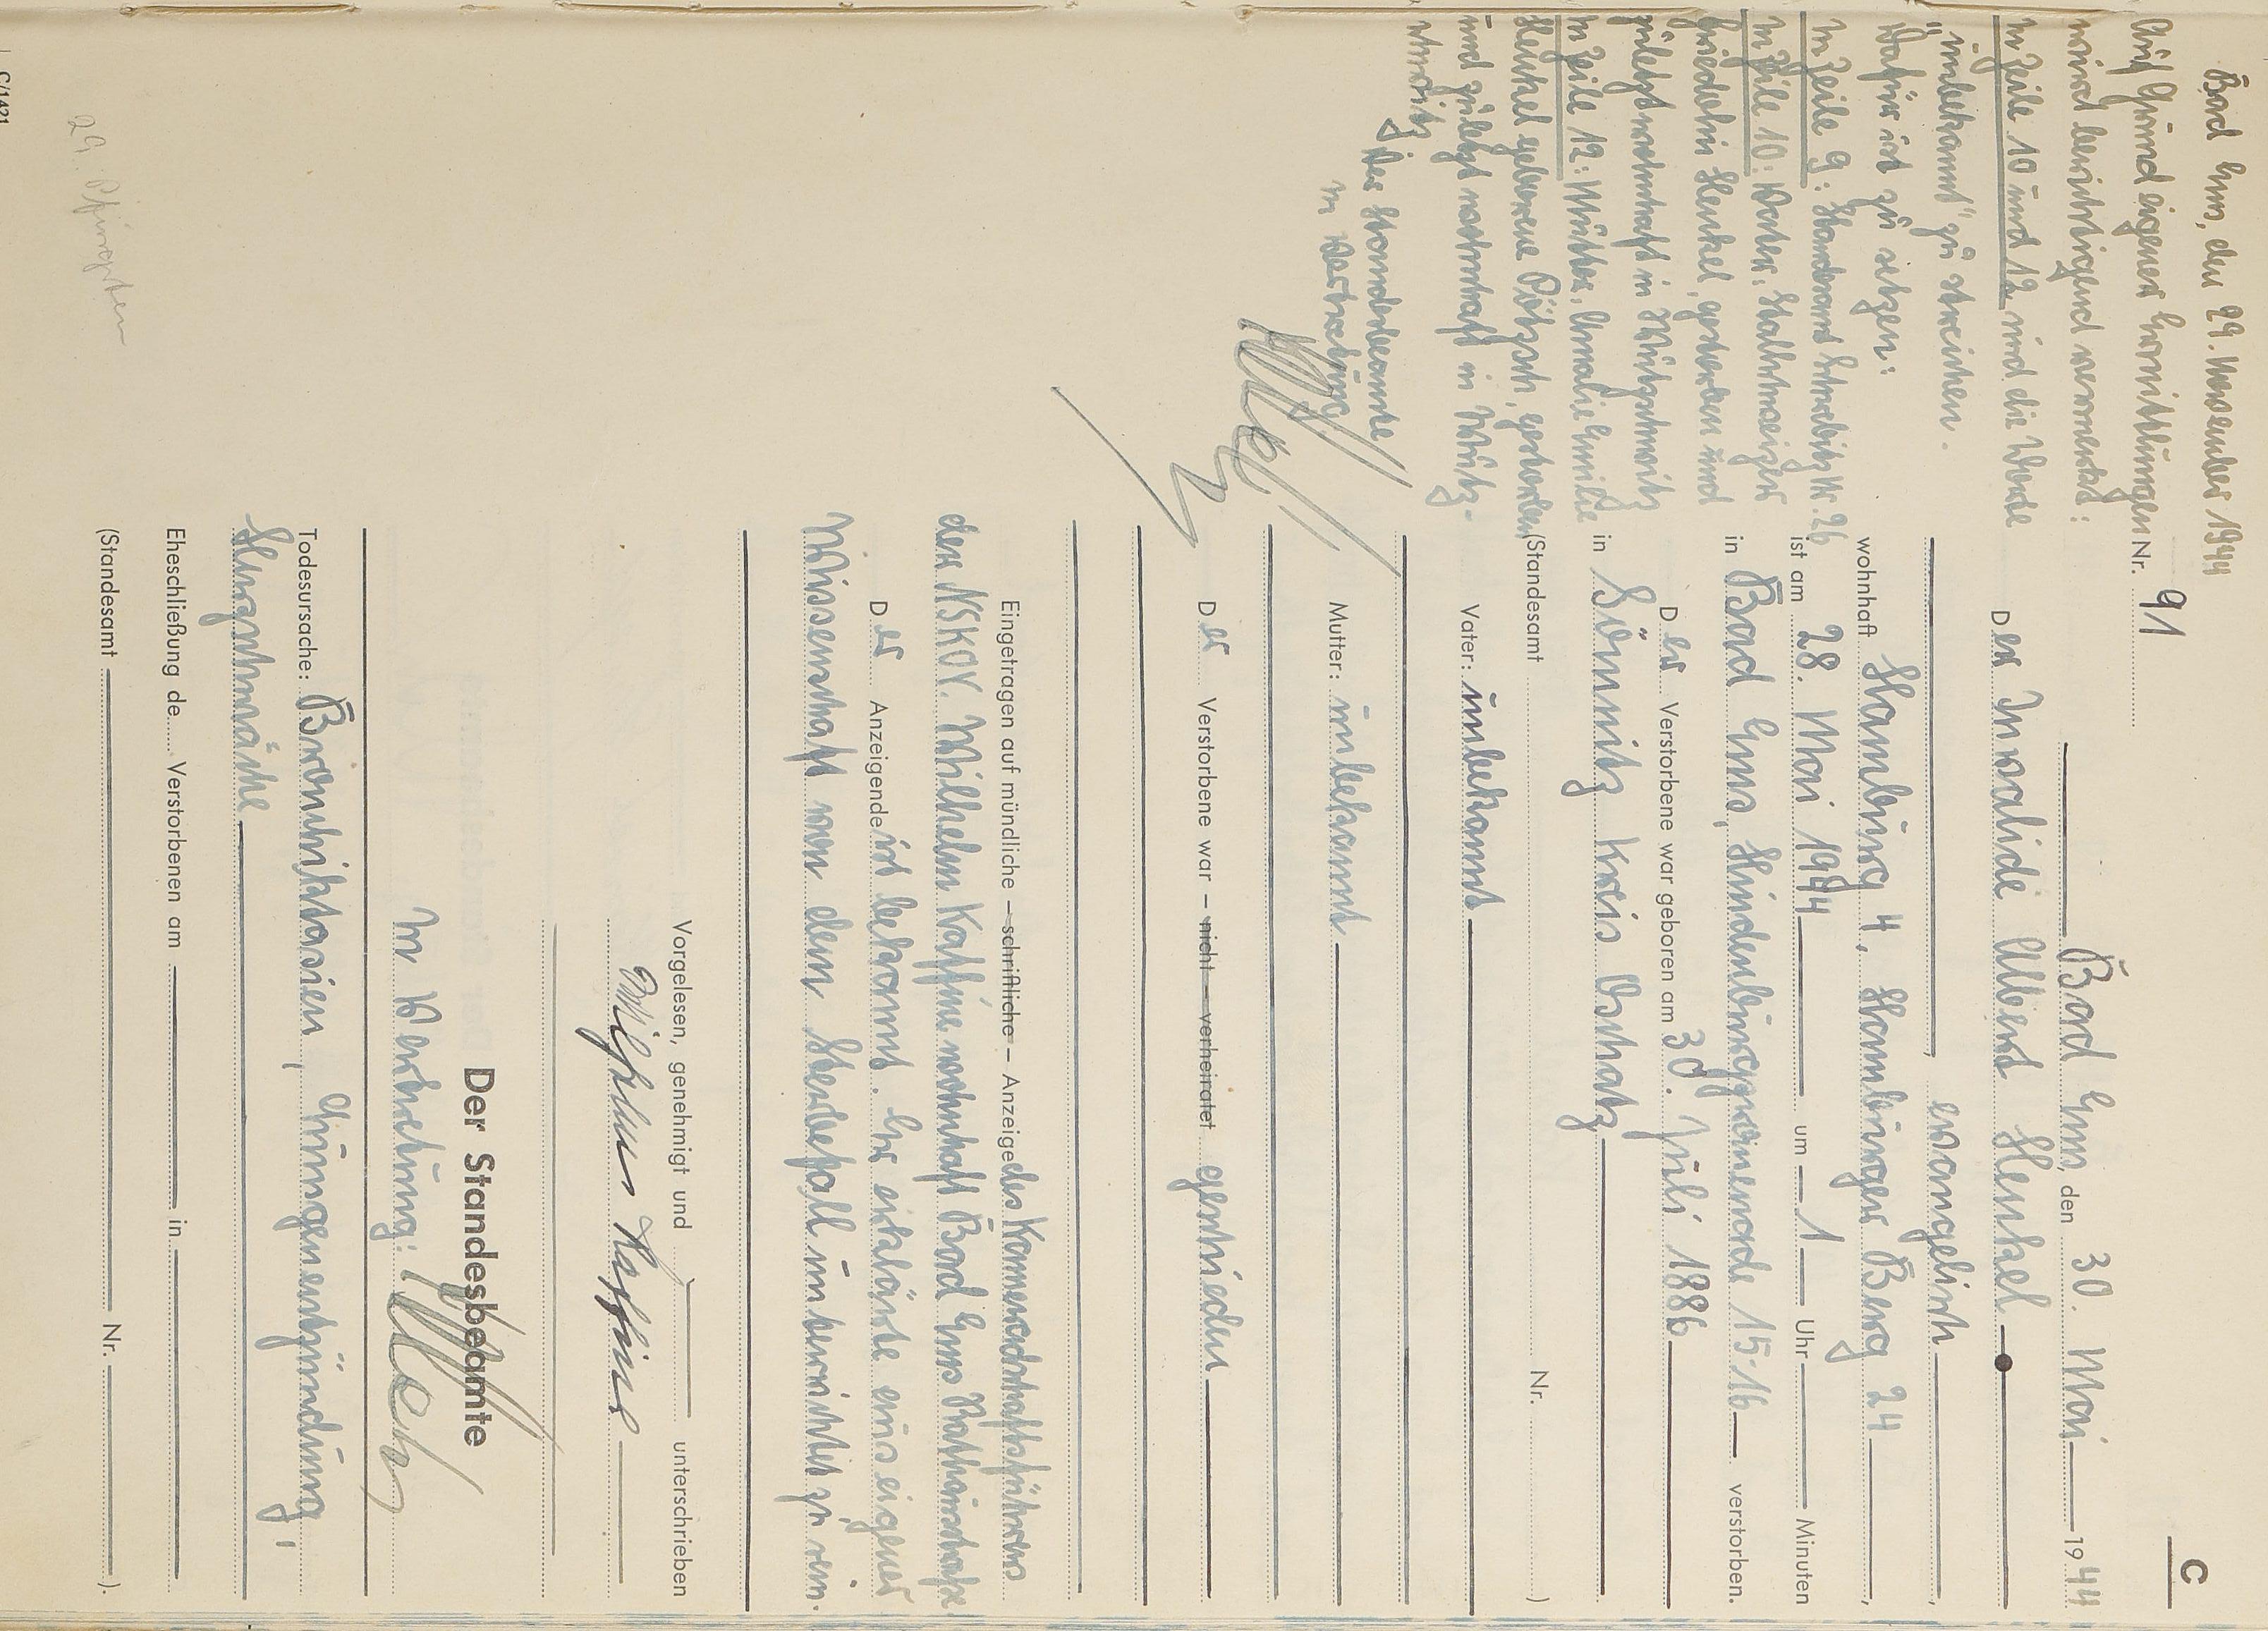 C
Nr. 91
Bad Ems, den 30. Mai 1944
Der Invalide Albert Henkel
evangelisch,
wohnhaft Hamburg 4, Hamburger Berg 24,
ist am 28. Mai 1944 um 1 Uhr Minuten
in Bad Ems, Hindenburgpromenade 15-16 verstorben.
Der Verstorbene war geboren am 30. Juli 1886
in Sörnitz Kreis Oschatz
(Standesamt Nr. )
Vater: unbekannt
Mutter: unbekannt
Der Verstorbene war – nicht – verheiratet geschieden
Eingetragen auf mündliche – schriftliche – Anzeige des Kameradschaftsführers
der NSKOV. Wilhelm Kaffine wohnhaft Bad Ems
Der Anzeigende ist bekannt. Er erklärte aus eigener
Wissenschaft von dem Sterbefall unterrichtet zu sein.
Vorgelesen, genehmigt und unterschrieben
Wilhelm Kaffine
Der Standesbeamte
In Vertretung:
Todesursache: Bronchiktasien, Lungenentzündung,
Herzschwäche
Eheschließung de Verstorbenen am in
(Standesamt Nr. ).
Bad Ems, den 29. November 1944
Auf Grund eigener Ermittlungen
wird berichtigend vermerkt:
In Zeile 10 und 12 sind die Worte
"unbekannt" zu streichen.
Dafür ist zu setzen:
In Zeile 9: Standesamt Nr. 26
In Zeile 10: Vater,
Henkel, gestorben und
zuletzt wohnhaft in
In Zeile 12: Mutter, Amalie Emilie
Henkel geborene gestorben
und zuletzt wohnhaft in
Der Standesbeamte
In Vertretung
29. Pfingsten
C/1421